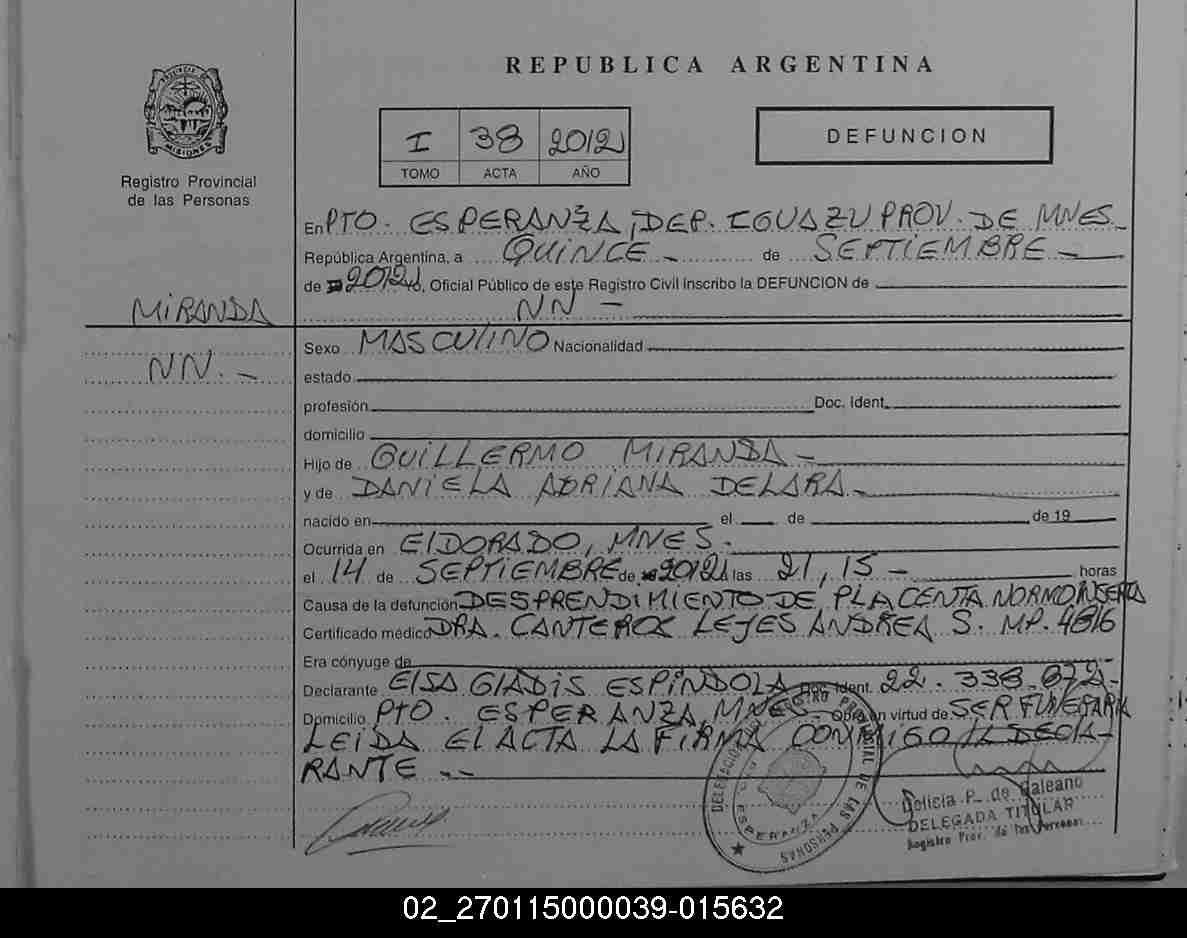 REPUBLICA ARGENTINA
PROVINCIA DE
MISIONES
Registro Provincial
de las Personas
I 38 2012
TOMO ACTA AÑO
DEFUNCION
En PTO. ESPERANZA, DEP. IGUAZU PROV. DE MNES.
República Argentina, a QUINCE - de SEPTIEMBRE -
de 2012, Oficial Público de este Registro Civil inscribo la DEFUNCION de
MIRANDA
NN -
Sexo MASCULINO Nacionalidad
NN. -
estado
profesión Doc. Ident.
domicilio
Hijo de GUILLERMO MIRANDA -
y de DANIELA ADRIANA DELARA -
nacido en el de de 19
Ocurrida en ElDORADO, MNES.
el 14 de SEPTIEMBRE de 2012 las 21,15 - horas
Causa de la defunción DESPRENDIMIENTO DE PLACENTA NORMOINSERTA
Certificado médico DRA. CANTEROS LEYES ANDREA S. MP. 4816
Era cónyuge de
Declarante ElSA GlADIS ESPINDOLA Doc. Ident. 22.338.872-
Domicilio PTO. ESPERANZA, MNES - Obra en virtud de SER FUNERARIA
LEIDA El ACTA LA FIRMA CONMIGO lA DEClA-
RANTE --
DELEGACION DEL REGISTRO PROVINCIAL DE LAS PERSONAS
ESPERANZA
Delicia P. de Galeano
DELEGADA TITULAR
Registro Prov. de las Personas
02_270115000039-015632